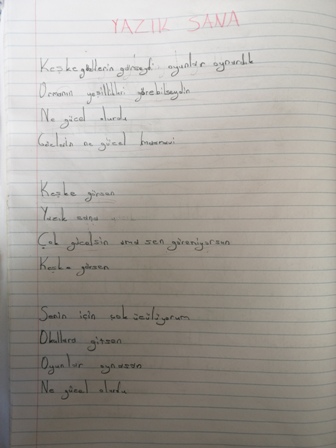 YAZIK SANA
Keşke gözlerin görseydi oyunlar oynardık
Ormanın yeşillikleri görebilseydin
Ne güzel olurdu
Gözlerin ne güzel
Keşke görsen
Yazık sana
Çok güzelsin ama sen göremiyorsun
Keşke görsen
Senin için çok üzülüyorum
Okullara gitsen
Oyunlar oynasan
Ne güzel olurdu